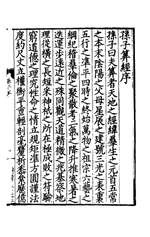 孫子算經序
孫子曰夫算者天地之經緯羣生之元首五常
之本末陰陽之父母星辰之建號三光之表裏
五行之準平四時之終始萬物之祖宗六藝之
綱紀稽羣倫之聚散考二氣之降升推寒暑之
迭運步遠近之殊同觀天道精微之兆基察地
理從橫之長短采神祇之所在極成敗之符驗
窮道德之理究性命之情立規矩準方圓謹法
度約尺丈立權衡平重輕剖毫釐析黍絫歷億